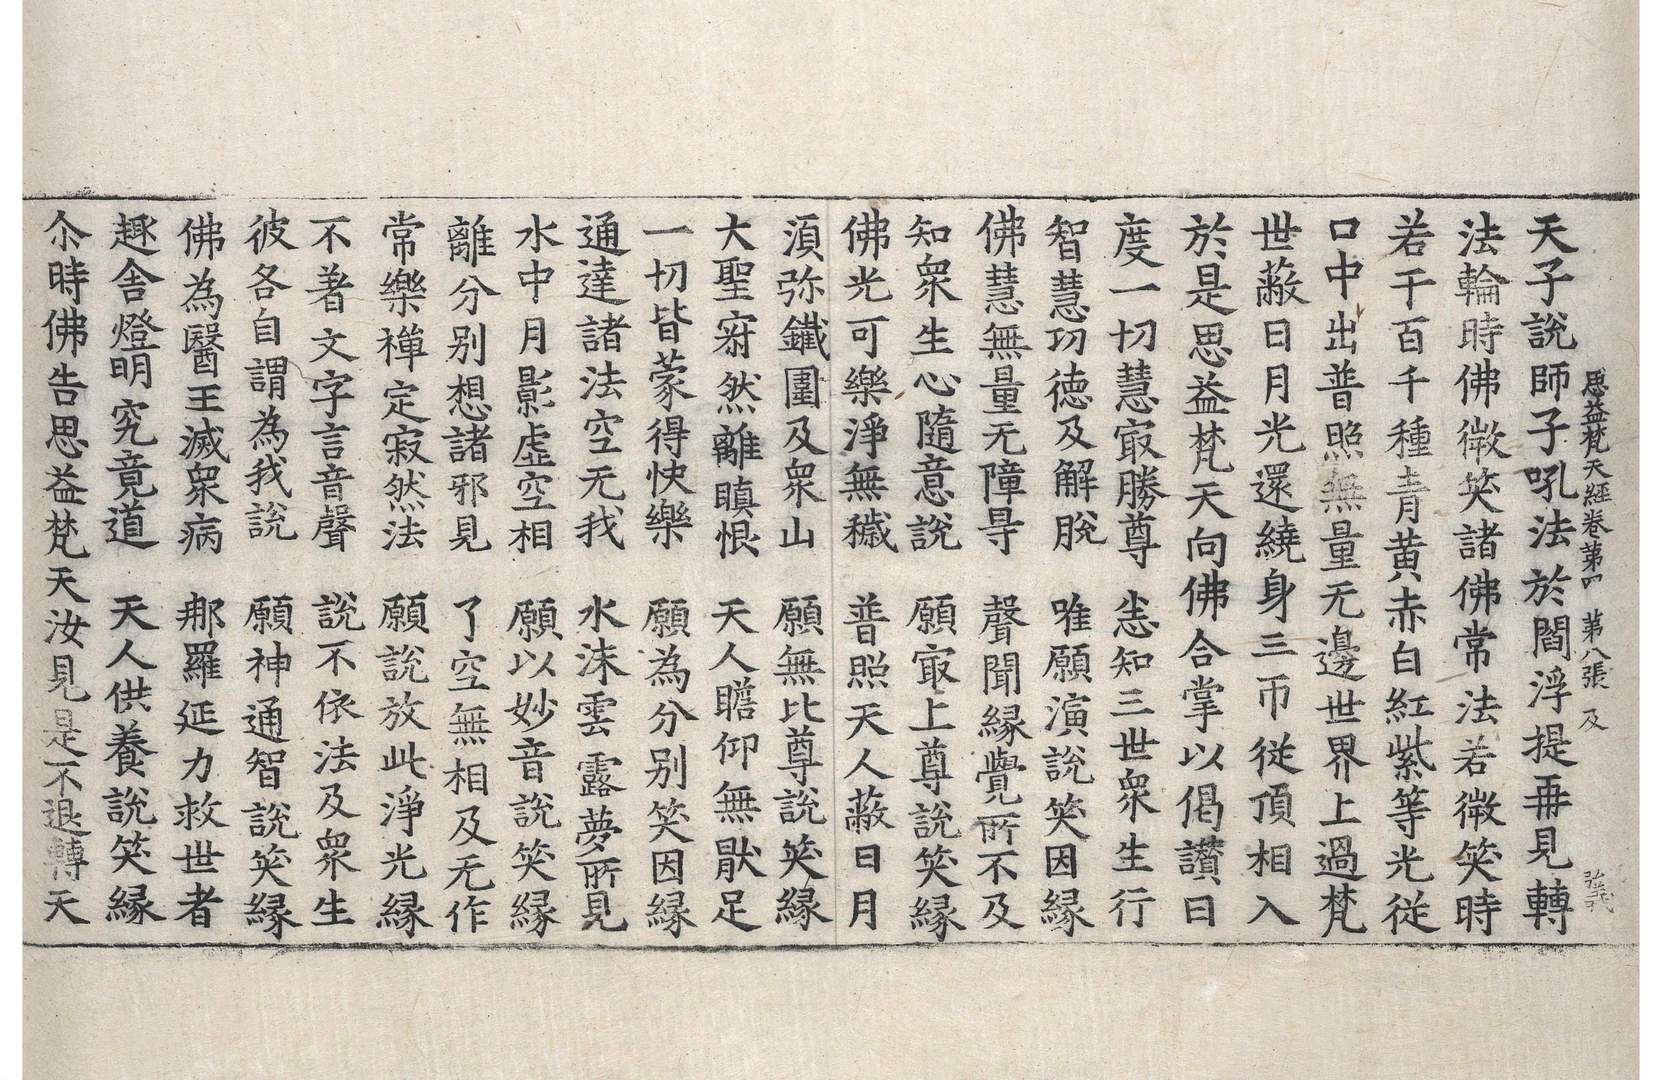 思益梵天經卷第四　第八張　及
天子說師子吼法於閻浮提再見轉
法輪時佛微笑諸佛常法若微笑時
若干百千種青黄赤白紅紫等光從
口中出普照無量无邊世界上過梵
世蔽日月光還繞身三帀從頂相入
於是思益梵天向佛合掌以偈讃曰
度一切慧㝡勝尊　悉知三世衆生行
智慧㓛徳及解脫　唯願演說笑因縁
佛慧無量无障㝵　聲聞縁覺所不及
知衆生心隨意說　願㝡上尊說笑縁
佛光可樂淨無穢　普照天人蔽日月
湏弥鐵圍及衆山　願無比尊說笑縁
大聖㝷然離瞋恨　天人瞻仰無猒足
一切皆蒙得快樂　願為分别笑因縁
通達諸法空无我　水沫雲露夢所見
水中月影虚空相　願以妙音說笑縁
離分别想諸邪見　了空無相及无作
常樂禅定寂然法　願說放此淨光縁
不著文字言音聲　說不依法及衆生
彼各自謂為我說　願神通智說笑縁
佛為醫王滅衆病　那羅延力救世者
趣舍燈明究竟道　天人供養說笑縁
尒時佛告思益梵天汝見是不退轉天